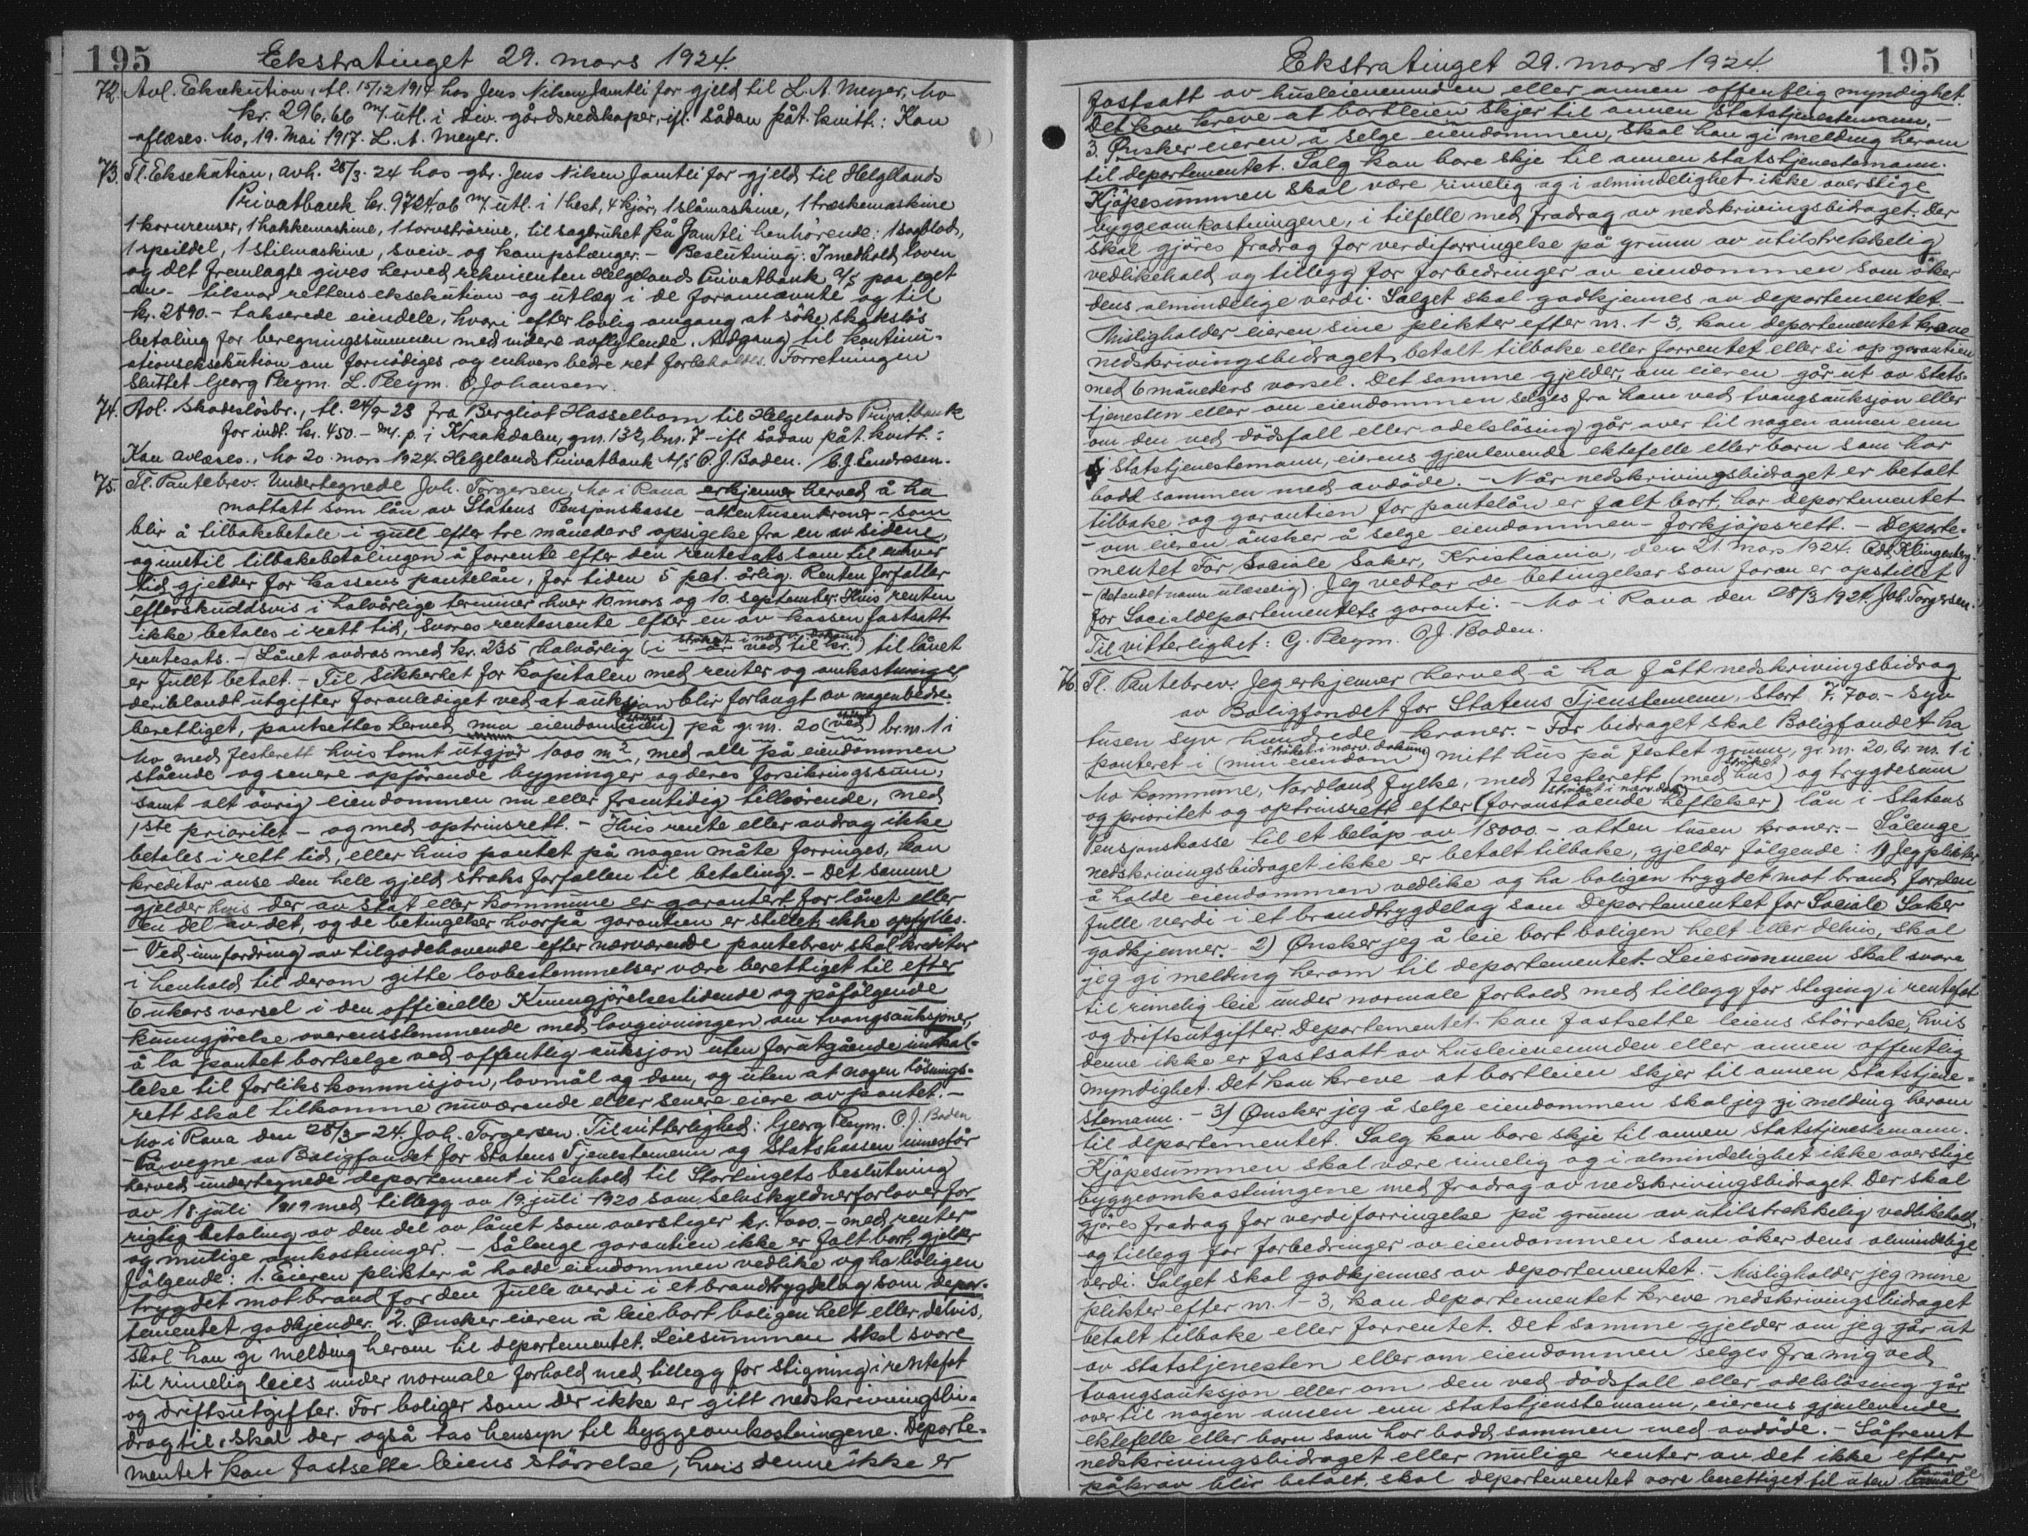 195
Ekstratinget 29. mars 1924.
72. Avl. Eksekution, tl. 15/12 1917 hos Jens Nilsen Jamtli for gjeld til L. A. Meyer, Mo
kr. 296.66 m/ utl. i div. gårdsredskaper, ifl. sådan påt. kvitt.: Kan
aflæses. Mo, 19. Mai 1917. L. A. Meyer.
73. Tl. Eksekution, avh. 28/3-24 hos gbr. Jens Nilsen Jamtli for gjeld til Helgelands
Privatbank kr. 9724.06 m/ utl. i 1 hest, 4 kjör, 1 slåmaskine, 1 træskemaskine
1 kornrenser, 1 hakkemaskine, 1 torvströrive, til sagbruket på Jamtli henhörende: 1 sagblad,
1 speildel, 1 stilmaskine, sveiv- og kampstænger. - Beslutning: I medhold loven
og det fremlagte gives herved rekvirenten Helgelands Privatbank A/S paa eget
an- tilsvar rettens eksekution og utlæg i de forannævnte og til
kr. 2890.- takserede eiendele, hvori efter lovlig omgang at söke skakslös
betaling for beregningssummen med videre avflytende. Adgang til kontinu-
ationseksekution om fornödiges og enhvers bedre ret forbeholdes. Forretningen
sluttet Georg Pleym. L. Pleym. O Johansen.
74. Avl. Skadeslösbr., tl. 24/9-23 fra Bergliot Hasselbom til Helgelands Privatbank
for indt. kr. 450.- m/ p. i Kraakdalen, gnr. 132, bnr. 7 - ifl sådan påt. kvitt.:
Kan avlæses., Mo 20. mars 1924. Helgelands Privatbank A/S O. J. Baden. / C. J. Endresen.
75. Tl. Pantebrev. Undertegnede Joh. Torgersen, Mo i Rana erkjenner herved å ha
mottatt som lån av Statens Pensjonskasse - attentusenkroner - som
blir å tilbakebetale i gull efter tre måneders opsigelse fra en av sidene,
og inntil tilbakebetalingen å forrente efter den rentesats som til enhver
tid gjelder for kassens pantelån, for tiden 5 pct. årlig. Renten forfaller
efterskuddsvis i halvårlige terminer hver 10. mars og 10. september. Hvis renten
ikke betales i rett tid, svares rentesrente efter en av kassen fastsatt
rentesats. - Lånet avdras med kr. 235 halvårlig (i år ved til kr.) til lånet
strøket i nærv. dokum.
er fullt betalt. - Til sikkerhet for kapitalen med renter og omkostninger
deriblandt utgifter foranlediget ved at auksjon blir forlangt av nogen bedre-
berettiget, pantsettes herved min eiendom (min) på g. nr. 20 (ved) br. nr. 1 i
strøket strøket
Mo med festerett hvis tomt utgjör 1000 m², med alle på eiendommen
stående og senere opförende bygninger og deres forsikringssum,
samt alt övrig eiendommen nu eller fremtidig tilhörende, med
1ste prioritet - og med optrinsrett. - Hvis rente eller avdrag ikke
betales i rett tid, eller hvis pantet på nogen måte forringes, kan
kreditor anse den hele gjeld straks forfallen til betaling. - Det samme
gjelder hvis der av stat eller kommune er garantert for lånet eller
en del av det, og de betingelser hvorpå garantien er stillet ikke opfylles.
- Ved innfordring av tilgodehavende efter nærværende pantebrev skal kreditor
i henhold til derom gitte lovbestemmelser være berettiget til efter
6 ukers varsel i den officielle Kunngjörelsestidende og påfölgende
kunngjörelse overensstemmende med lovgivningen om tvangsauksjoner,
å la pantet bortselge ved offentlig auksjon uten forutgående innkal-
lelse til forlikskommisjon, lovmål og dom, og uten at nogen lösnings-
rett skal tilkomme nuværende eller senere eiere av pantet. -
Mo i Rana den 28/3-24. Joh. Torgersen. Til vitterlighed: Georg Pleym. O. J. Baden
- På vegne av Boligfondet for Statens Tjenestemenn og Statskassen innestår
herved undertegnede departement i henhold til Stortingets beslutning
av 18. juli 1919 med tillegg av 19. juli 1920 som selvskyldnerforlover for
rigtig betaling av den del av lånet som overstiger kr. 4000.- med renter
og mulige omkostninger. - Sålenge garantien ikke er falt bort, gjelder
fölgende: 1. Eieren plikter å holde eiendommen vedlike og ha boligen
trygdet mot brand for den fulle verdi i et brandtrygdelag som depar-
tementet godkjender. 2. Önsker eieren å leie bort boligen helt eller delvis,
skal han gi melding herom til departementet. Leiesummen skal svare
til rimelig leies under normale forhold med tillegg for stigning i rentefot
og driftsutgifter. For boliger som der ikke er gitt nedskrivningsbi-
drag til, skal der også tas hensyn til byggeomkostningene. Departe-
mentet kan fastsette leiens störrelse, hvis denne ikke er
Ekstratinget 29. mars 1924.
195
fastsatt av husleienemnden eller annen offentlig myndighet.
Det kan kreve at bortleien skjer til annen Statstjenestemann. -
3. Önsker eieren å selge eiendommen, skal han gi melding herom
til departementet. Salg kan bare skje til annen statstjenestemann.
Kjöpesummen skal være rimelig og i almindelighet ikke overstige
byggeomkostningene, i tilfelle med fradrag av nedskrivningsbidraget. Der
skal gjöres fradrag for verdiforringelse på grunn av utilstrekkelig
vedlikehold og tillegg for forbedringer av eiendommen som öker
dens almindelige verdi. Salget skal godkjennes av departementet. -
Misligholder eieren sine plikter efter nr. 1-3, kan departementet kreve
nedskrivningsbidraget betalt tilbake eller forrentet eller si op garantien
med 6 måneders varsel. Det samme gjelder, om eieren går ut av stats-
tjenesten eller om eiendommen selges fra ham ved tvangsauksjon eller
om den ved dödsfall eller odelslösing går over til nogen annen enn
Statstjenestemann, eierens gjenlevende ektefelle eller barn som har
bodd sammen med avdöde. - Når nedskrivningsbidraget er betalt
tilbake og garantien for pantelån er falt bort, har departementet
- om eieren önsker å selge eiendommen - forkjöpsrett. - Departe-
mentet For Sociale Saker, Kristiania, den 21. mars 1924. Odd Klingenberg.
- (det endet navn ulæselig) Jeg vedtar de betingelser som foran er opstillet
for Socialdepartementets garanti. - Mo i Rana den 28/3 1924 Joh. Torgersen.
Til vitterlighet: G. Pleym. O J. Baden.
76. Tl. Pantebrev. Jeg erkjenner herved å ha fått nedskrivingsbidrag
av Boligfondet for Statens Tjenestemenn, stort kr. 700.- syv
tusen syv hundrede kroner. - For bidraget skal Boligfondet ha
panteret i (min eiendom) mitt hus på festet grunn, gr. nr. 20, br. nr. 1 i
strøket i nærv. dokum.
Mo kommune, Nordland fylke, med festerett (med hus) og trygdesum
strøket
og prioritet og optrinsrett efter (foranstående heftelser) lån i Statens
strøket i nærv. dok.
Pensjonskasse til et beløp av 18000.- atten tusen kroner. - Sålenge
nedskrivingsbidraget ikke er betalt tilbake, gjelder fölgende: 1) Jeg plikter
å holde eiendommen vedlike og ha boligen trygdet mot brand for den
fulle verdi i et brandtrygdelag som Departementet for Sociale Saker
godkjenner. 2) Önsker jeg å leie bort boligen helt eller delvis, skal
jeg gi melding herom til departementet. Leiesummen skal svare
til rimelig leie under normale forhold med tillegg for stigning i rentefot
og driftsutgifter. Departementet kan fastsette leiens störrelse, hvis
denne ikke er fastsatt av husleienemnden eller annen offentlig
myndighet. Det kan kreve at bortleien skjer til annen statstjene-
stemann. - 3) Önsker jeg å selge eiendommen skal jeg gi melding herom
til departementet. Salg kan bare skje til annen statstjenestemann.
Kjöpesummen skal være rimelig og i almindelighet ikke overstige
byggeomkostningene med fradrag av nedskrivningsbidraget. Der skal
gjöres fradrag for verdiforringelse på grunn av utilstrekkelig vedlikehold,
og tillegg for forbedringer av eiendommen som öker dens almindelige
verdi. Salget skal godkjennes av departementet. - Misligholder jeg mine
plikter efter nr. 1-3, kan departementet kreve nedskrivingsbidraget
betalt tilbake eller forrentet. Det samme gjelder om jeg går ut
av statstjenesten eller om eiendommen selges fra mig ved
tvangsauksjon eller om den ved dödsfall eller odelslösning går
over til nogen annen enn statstjenestemann, eierens gjenlevende
ektefelle eller barn som har bodd sammen med avdöde. - Såfremt
nedskrivingsbidraget eller mulige renter av det ikke efter
påkrav blir betalt, skal departementet være berettiget til uten lovmål